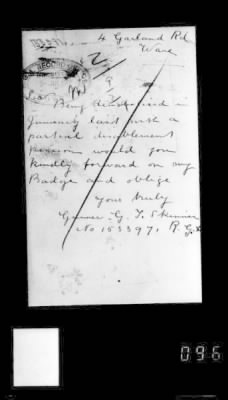 4 Garland Rd
Ware
Sir Being discharged in
January last with a
partial disablement
pension would you
kindly forward on my
Badge and oblige
yours truly
Gunner G. T. Skinner
No 153397, R.G.A
096